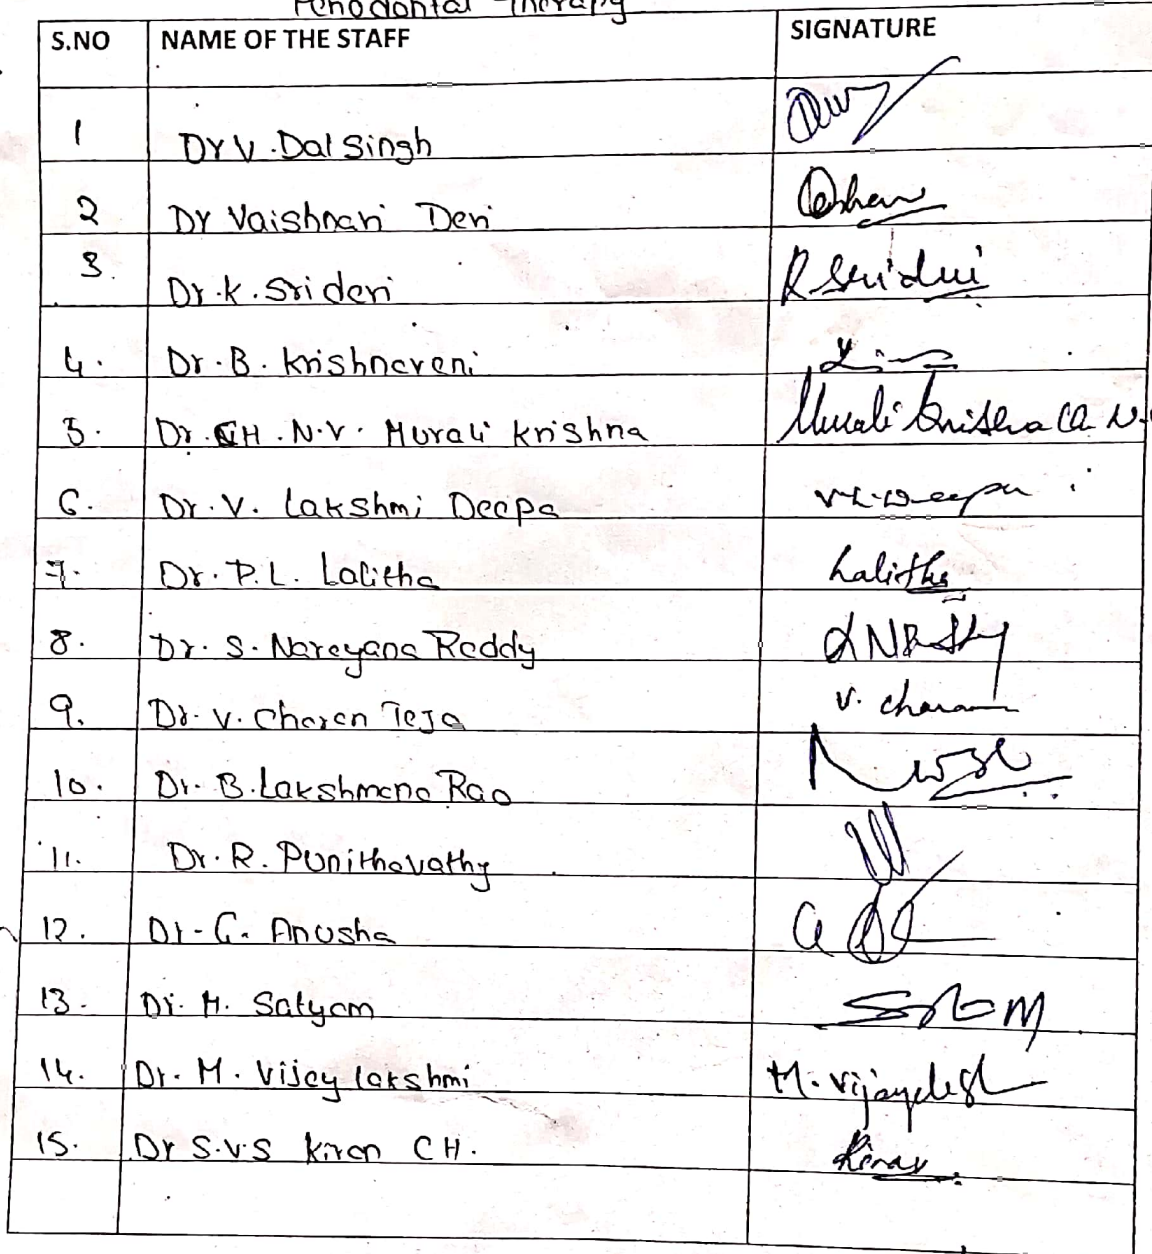 Periodontal Therapy
S.NO NAME OF THE STAFF SIGNATURE
1 Dr V. Dal Singh
2 Dr Vaishnavi Devi
3. Dr. K. Sridevi K Sridevi
4. Dr. B. Krishnaveni
5. Dr. CH. N.V. Murali Krishna Murali Krishna Ch N.
6. Dr. V. Lakshmi Deepa V.L.Deepa
7. Dr. P.L. Lalitha Lalitha
8. Dr. S. Narayana Reddy
9. Dr. V. Charan Teja V. Charan
10. Dr. B. Lakshmana Rao
11. Dr. R. Punithavathy
12. Dr. G. Anusha
13. Dr. M. Satyam
14. Dr. M. Vijay lakshmi
15. Dr S.V.S Kiran CH. Kiran